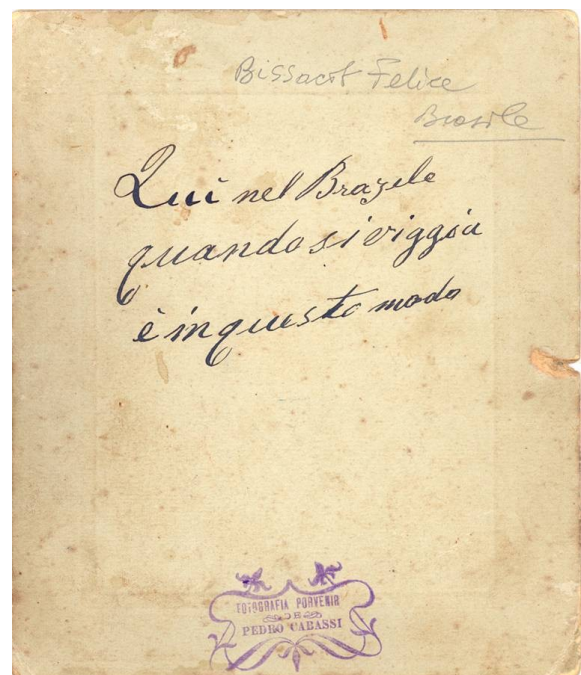 Bissacot Felice
Brasile
Qui nel Brazile
quando si viggia
è in questo modo
FOTOGRAFIA PORVENIR
DE
PEDRO CABASSI